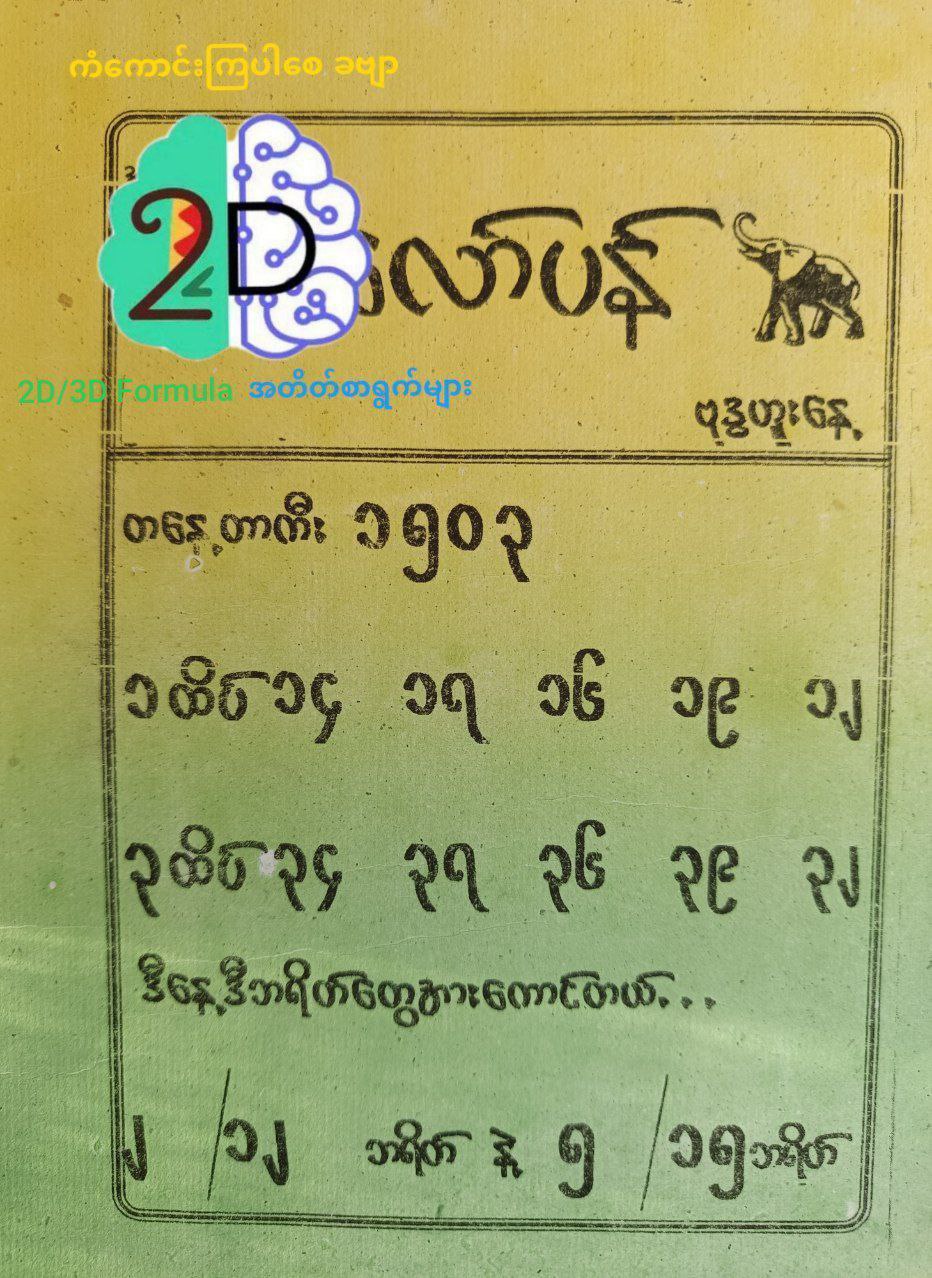 ကံကောင်းကြပါစေ ခဗျာ
2D
လော်ပန်
2D/3D Formula အတိတ်စာရွက်များ
ဗုဒ္ဓဟူးနေ့
တနေ့တာကီး ၁၅၀၃
၁ထိပ် ၁၄ ၁၇ ၁၆ ၁၉ ၁၂
၃ထိပ် ၃၄ ၃၇ ၃၆ ၃၉ ၃၂
ဒီနေ့ဒီဘရိတ်တွေအားကောင်တယ်...
၂ / ၁၂ ဘရိတ် နဲ့ ၅ / ၁၅ ဘရိတ်